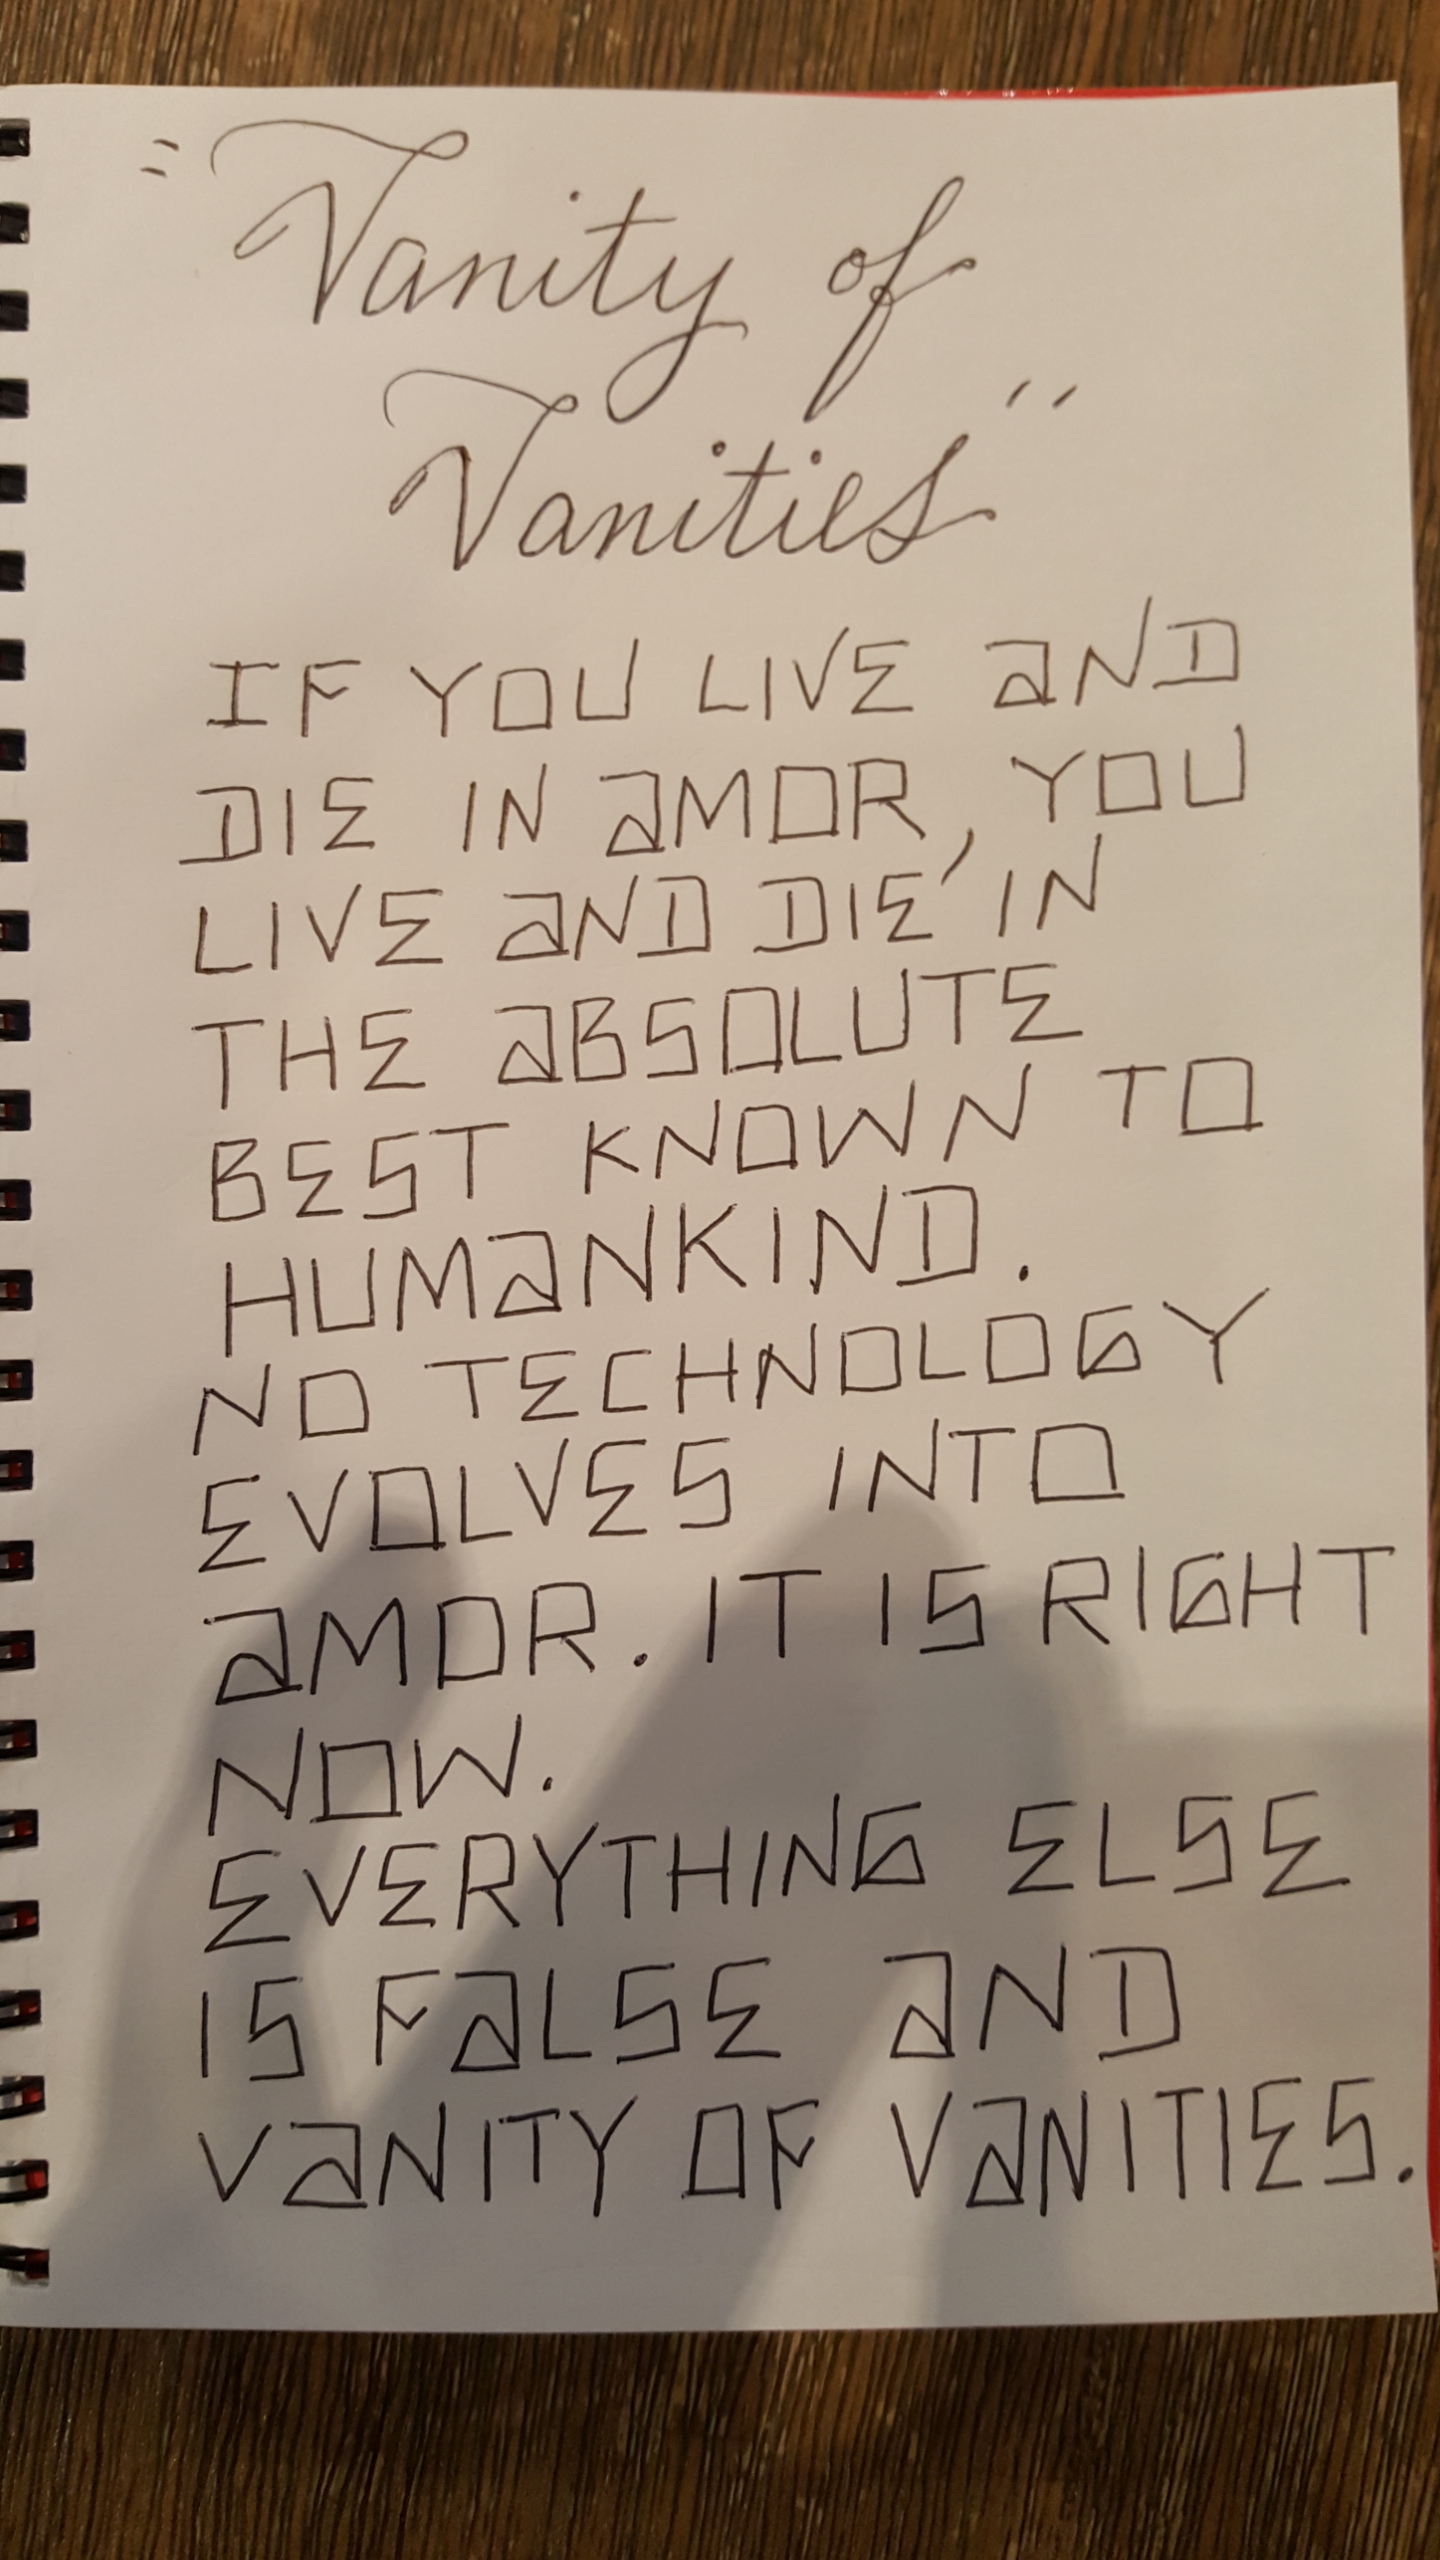 "Vanity of
Vanities"
IF YOU LIVE AND
DIE IN AMOR, YOU
LIVE AND DIE IN
THE ABSOLUTE
BEST KNOWN TO
HUMANKIND.
NO TECHNOLOGY
EVOLVES INTO
AMOR. IT IS RIGHT
NOW.
EVERYTHING ELSE
IS FALSE AND
VANITY OF VANITIES.